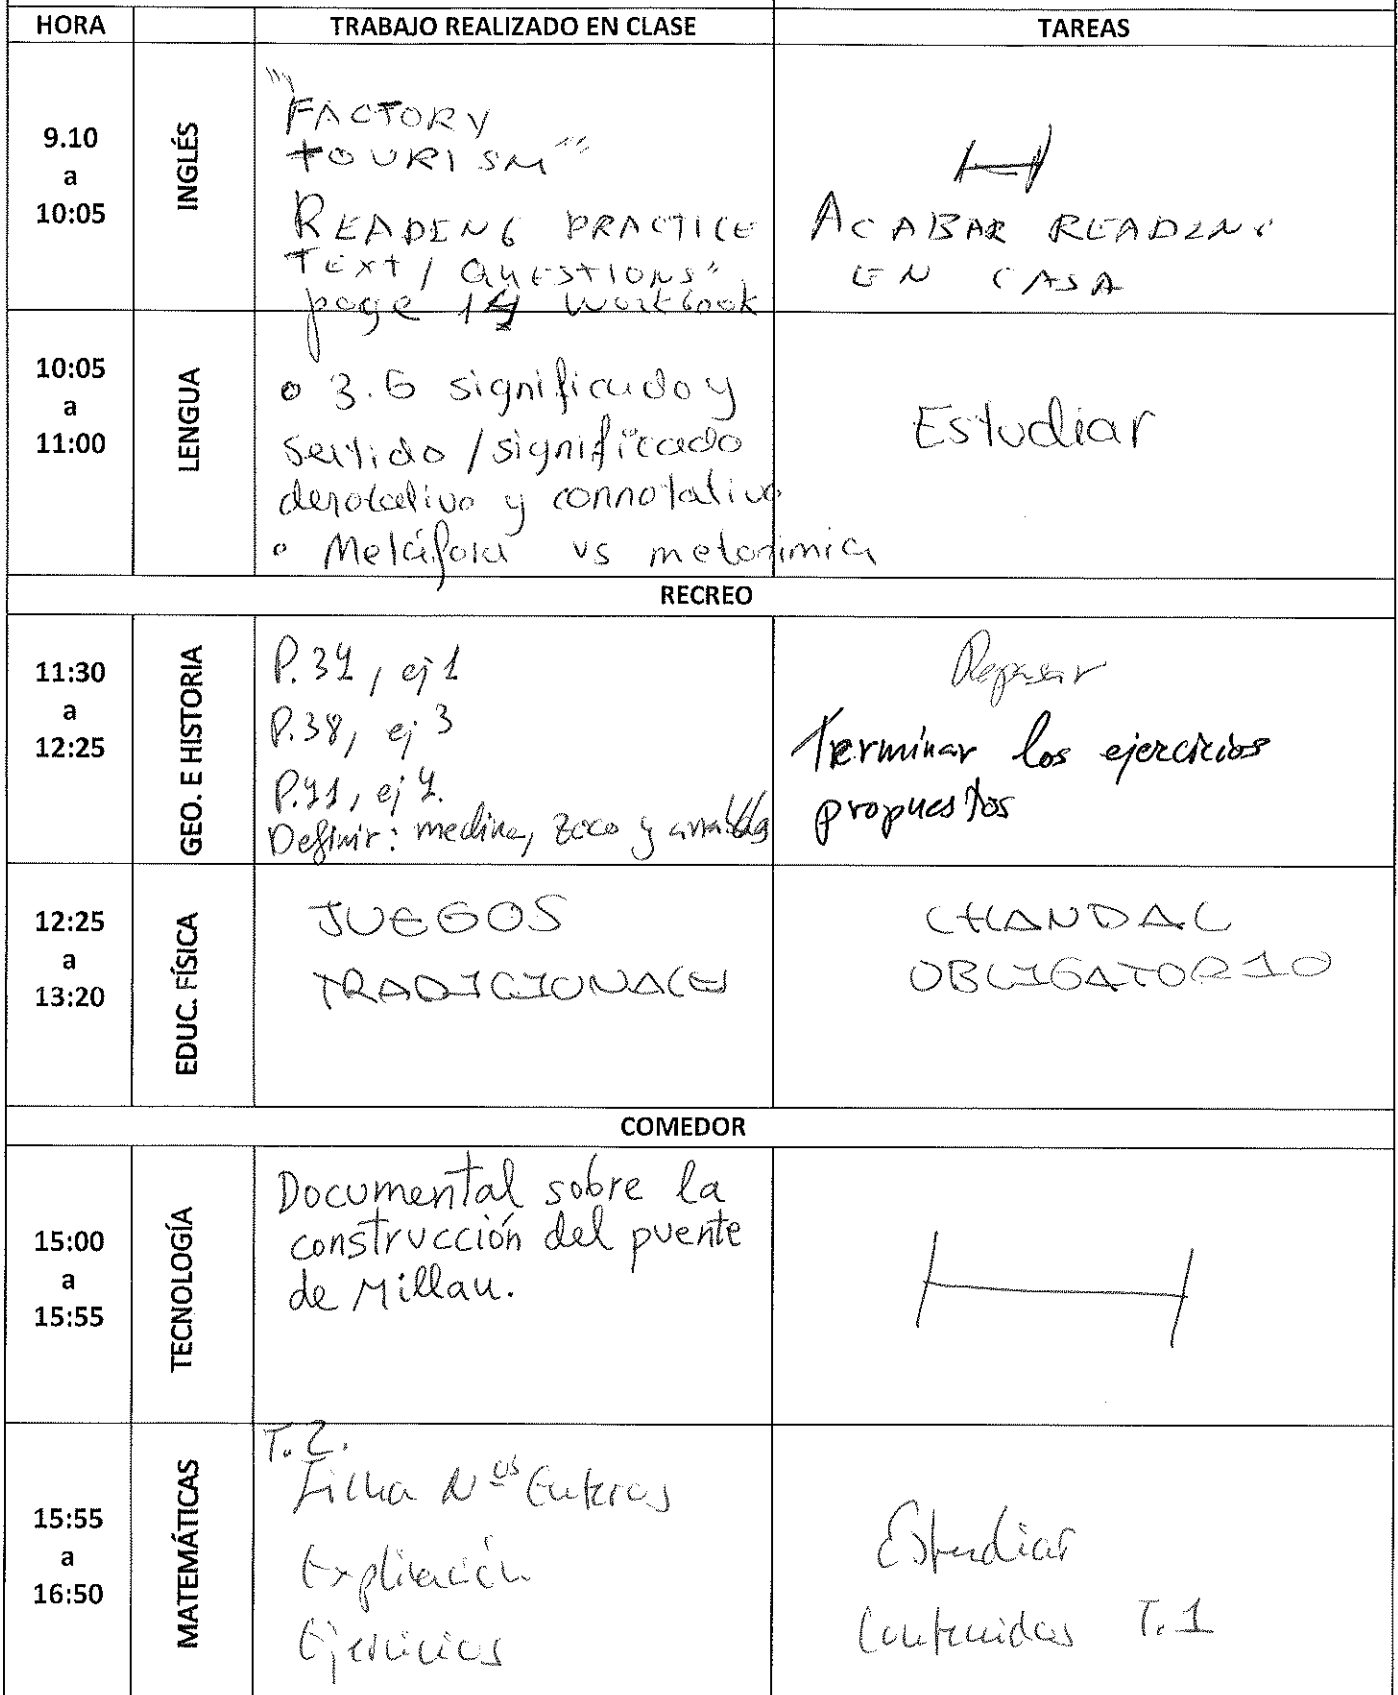 HORA TRABAJO REALIZADO EN CLASE TAREAS
9.10
a
10:05
INGLÉS
"FACTORY
TOURISM"
READING PRACTICE
TEXT / QUESTIONS"
page 14 Workbook
ACABAR READING
EN CASA
10:05
a
11:00
LENGUA
• 3.6 significado y
sentido / significado
denotativo y connotativo
• Metáfora vs metonimia
Estudiar
RECREO
11:30
a
12:25
GEO. E HISTORIA
P. 34, ej 1
P.38, ej 3
P.41, ej 4.
Definir: medina, zoco y arrabales
Repasar
Terminar los ejercicios
propuestos
12:25
a
13:20
EDUC. FÍSICA
JUEGOS
TRADICIONALES
CHANDAL
OBLIGATORIO
COMEDOR
15:00
a
15:55
TECNOLOGÍA
Documental sobre la
construcción del puente
de Millau.
15:55
a
16:50
MATEMÁTICAS
T. 2.
Ficha Nºs Enteros
Explicación
Ejercicios
Estudiar
Contenidos T.1